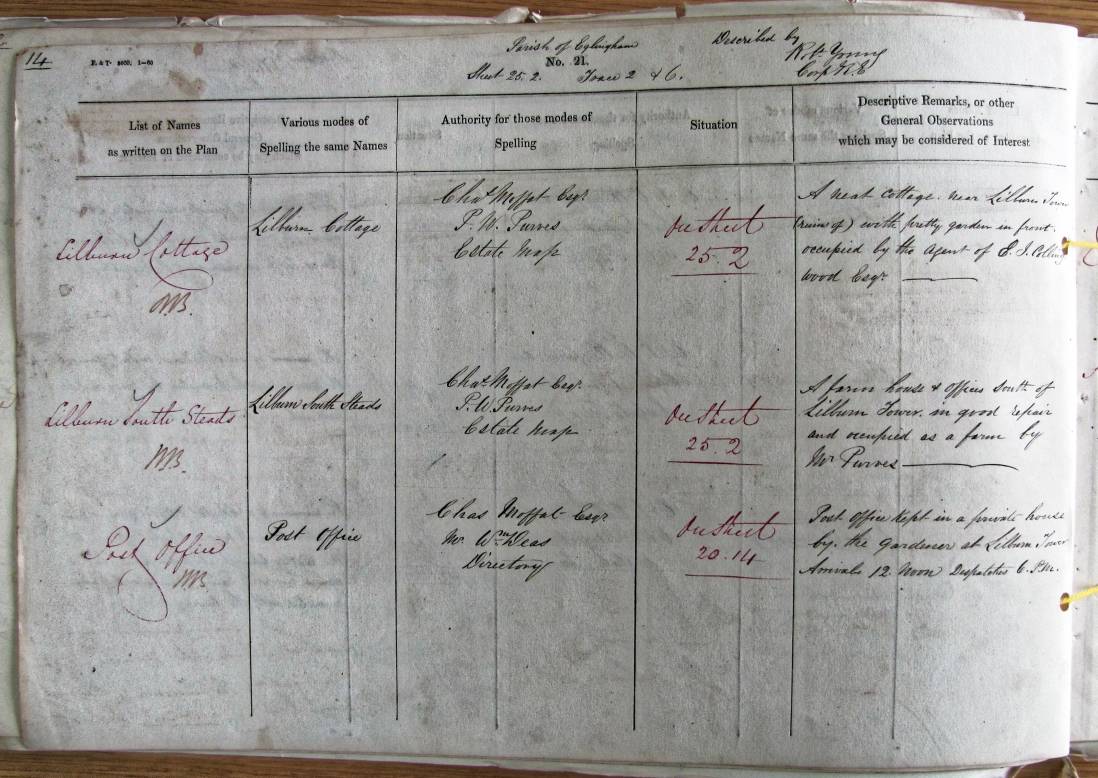 14
Parish of Eglingham
Described by
R. & T. 8600. 1-60
No. 21.
Robt Young
Sheet 25.2. Trace 2 & 6.
Corpl R.E
List of Names
as written on the Plan
Various modes of
Spelling the same Names
Authority for those modes of
Spelling
Situation
Descriptive Remarks, or other
General Observations
which may be considered of Interest
Lilburn Cottage
Lilburn Cottage
Chas Moffat Esqr
P. W. Purves
Estate Map
On Sheet
25.2
A neat cottage near Lilburn Tower
(ruins of) with pretty garden in front.
occupied by the agent of E. J. Colling
wood Esqr
Lilburn South Steads
Lilburn South Steads
Chas Moffat Esqr
P. W. Purves
Estate Map
On Sheet
25.2
A farm house & offices south of
Lilburn Tower. in good repair
and occupied as a farm by
Mr Purves
Post Office
Post Office
Chas Moffat Esqr
Mr. Wm Deas
Directory
On Sheet
20.14
Post Office kept in a private house
by the gardener at Lilburn Tower
Arrivals 12. Noon Dispatches 6. P.M.